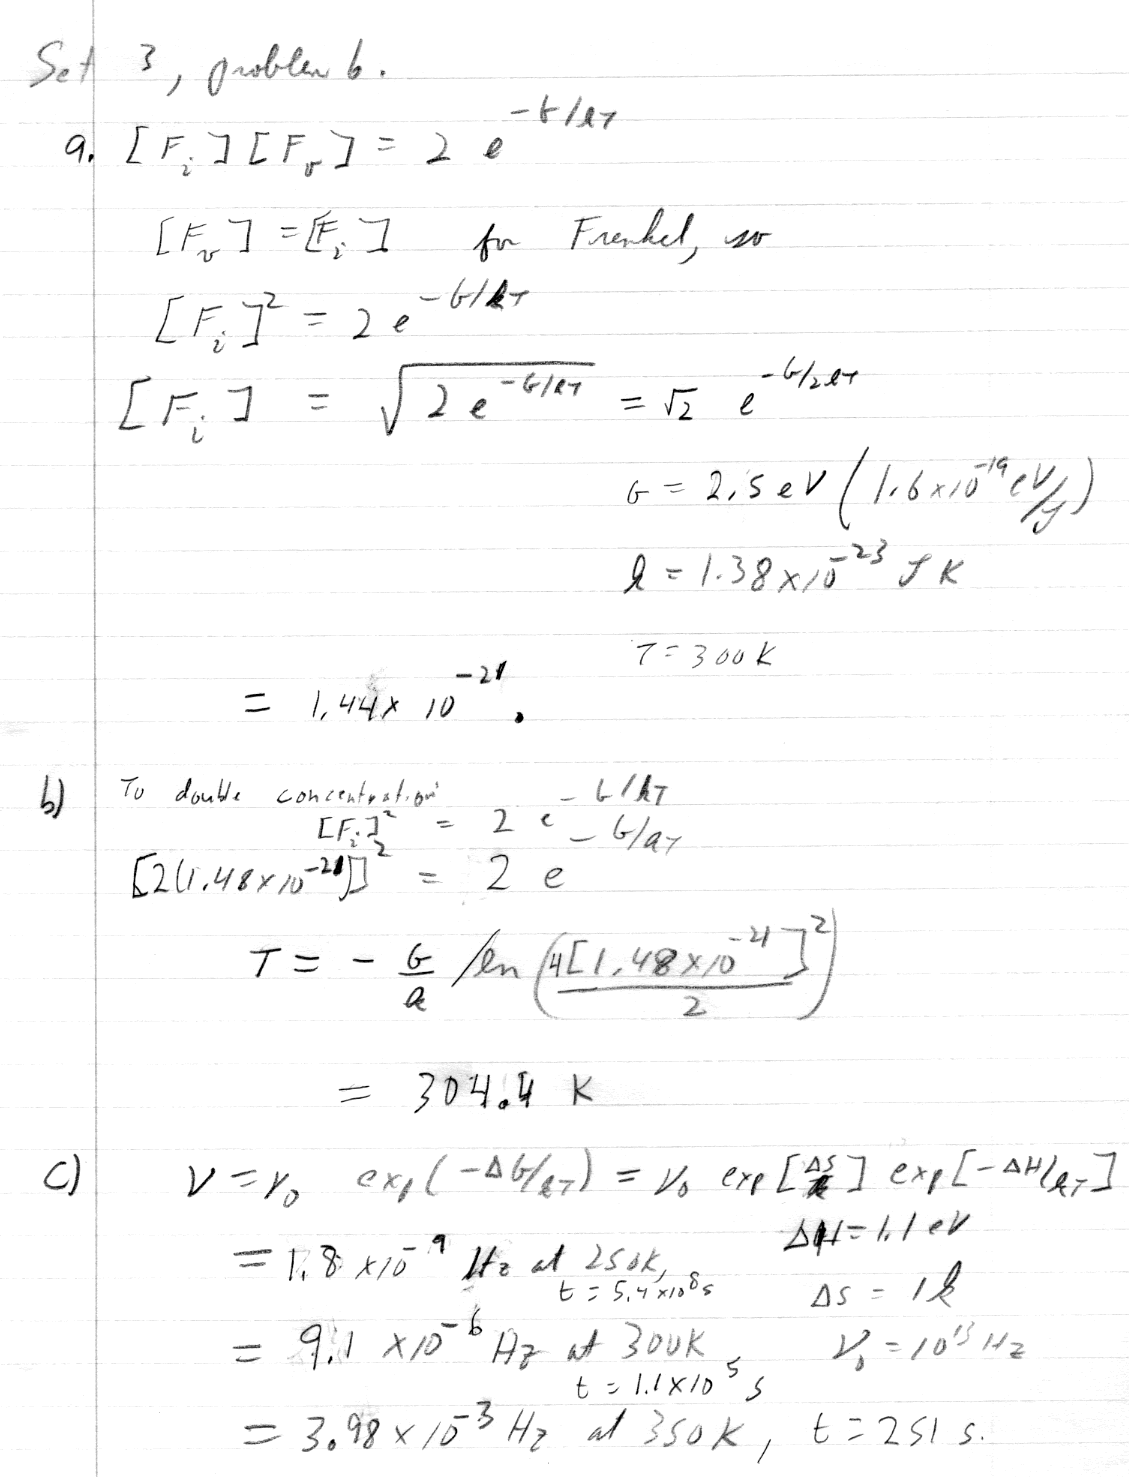 Set 3, problem 6.
a. [F_i][F_v] = 2 e^{-G/kT}
[F_v] = [F_i] for Frenkel, so
[F_i]^2 = 2 e^{-G/kT}
[F_i] = √(2 e^{-G/kT}) = √2 e^{-G/2kT}
G = 2.5 eV (1.6×10^{-19} eV/J)
k = 1.38×10^{-23} J K
T = 300 K
= 1.44× 10^{-21}.
b) To double concentration
[F_i]^2 = 2 e^{-G/kT}
[2(1.48×10^{-21})]^2 = 2 e^{-G/kT}
T = - G/k / ln (4[1.48×10^{-21}]^2/2)
= 304.4 K
c) ν = ν_0 exp(-ΔG/kT) = ν_0 exp[ΔS/k] exp[-ΔH/kT]
ΔH = 1.1 eV
= 1.8 ×10^{-9} Hz at 250K,
t = 5.4×10^8 s
ΔS = 1k
= 9.1 ×10^{-6} Hz at 300K
ν_0 = 10^{13} Hz
t = 1.1×10^5 s
= 3.98×10^{-3} Hz at 350K, t = 251 s.